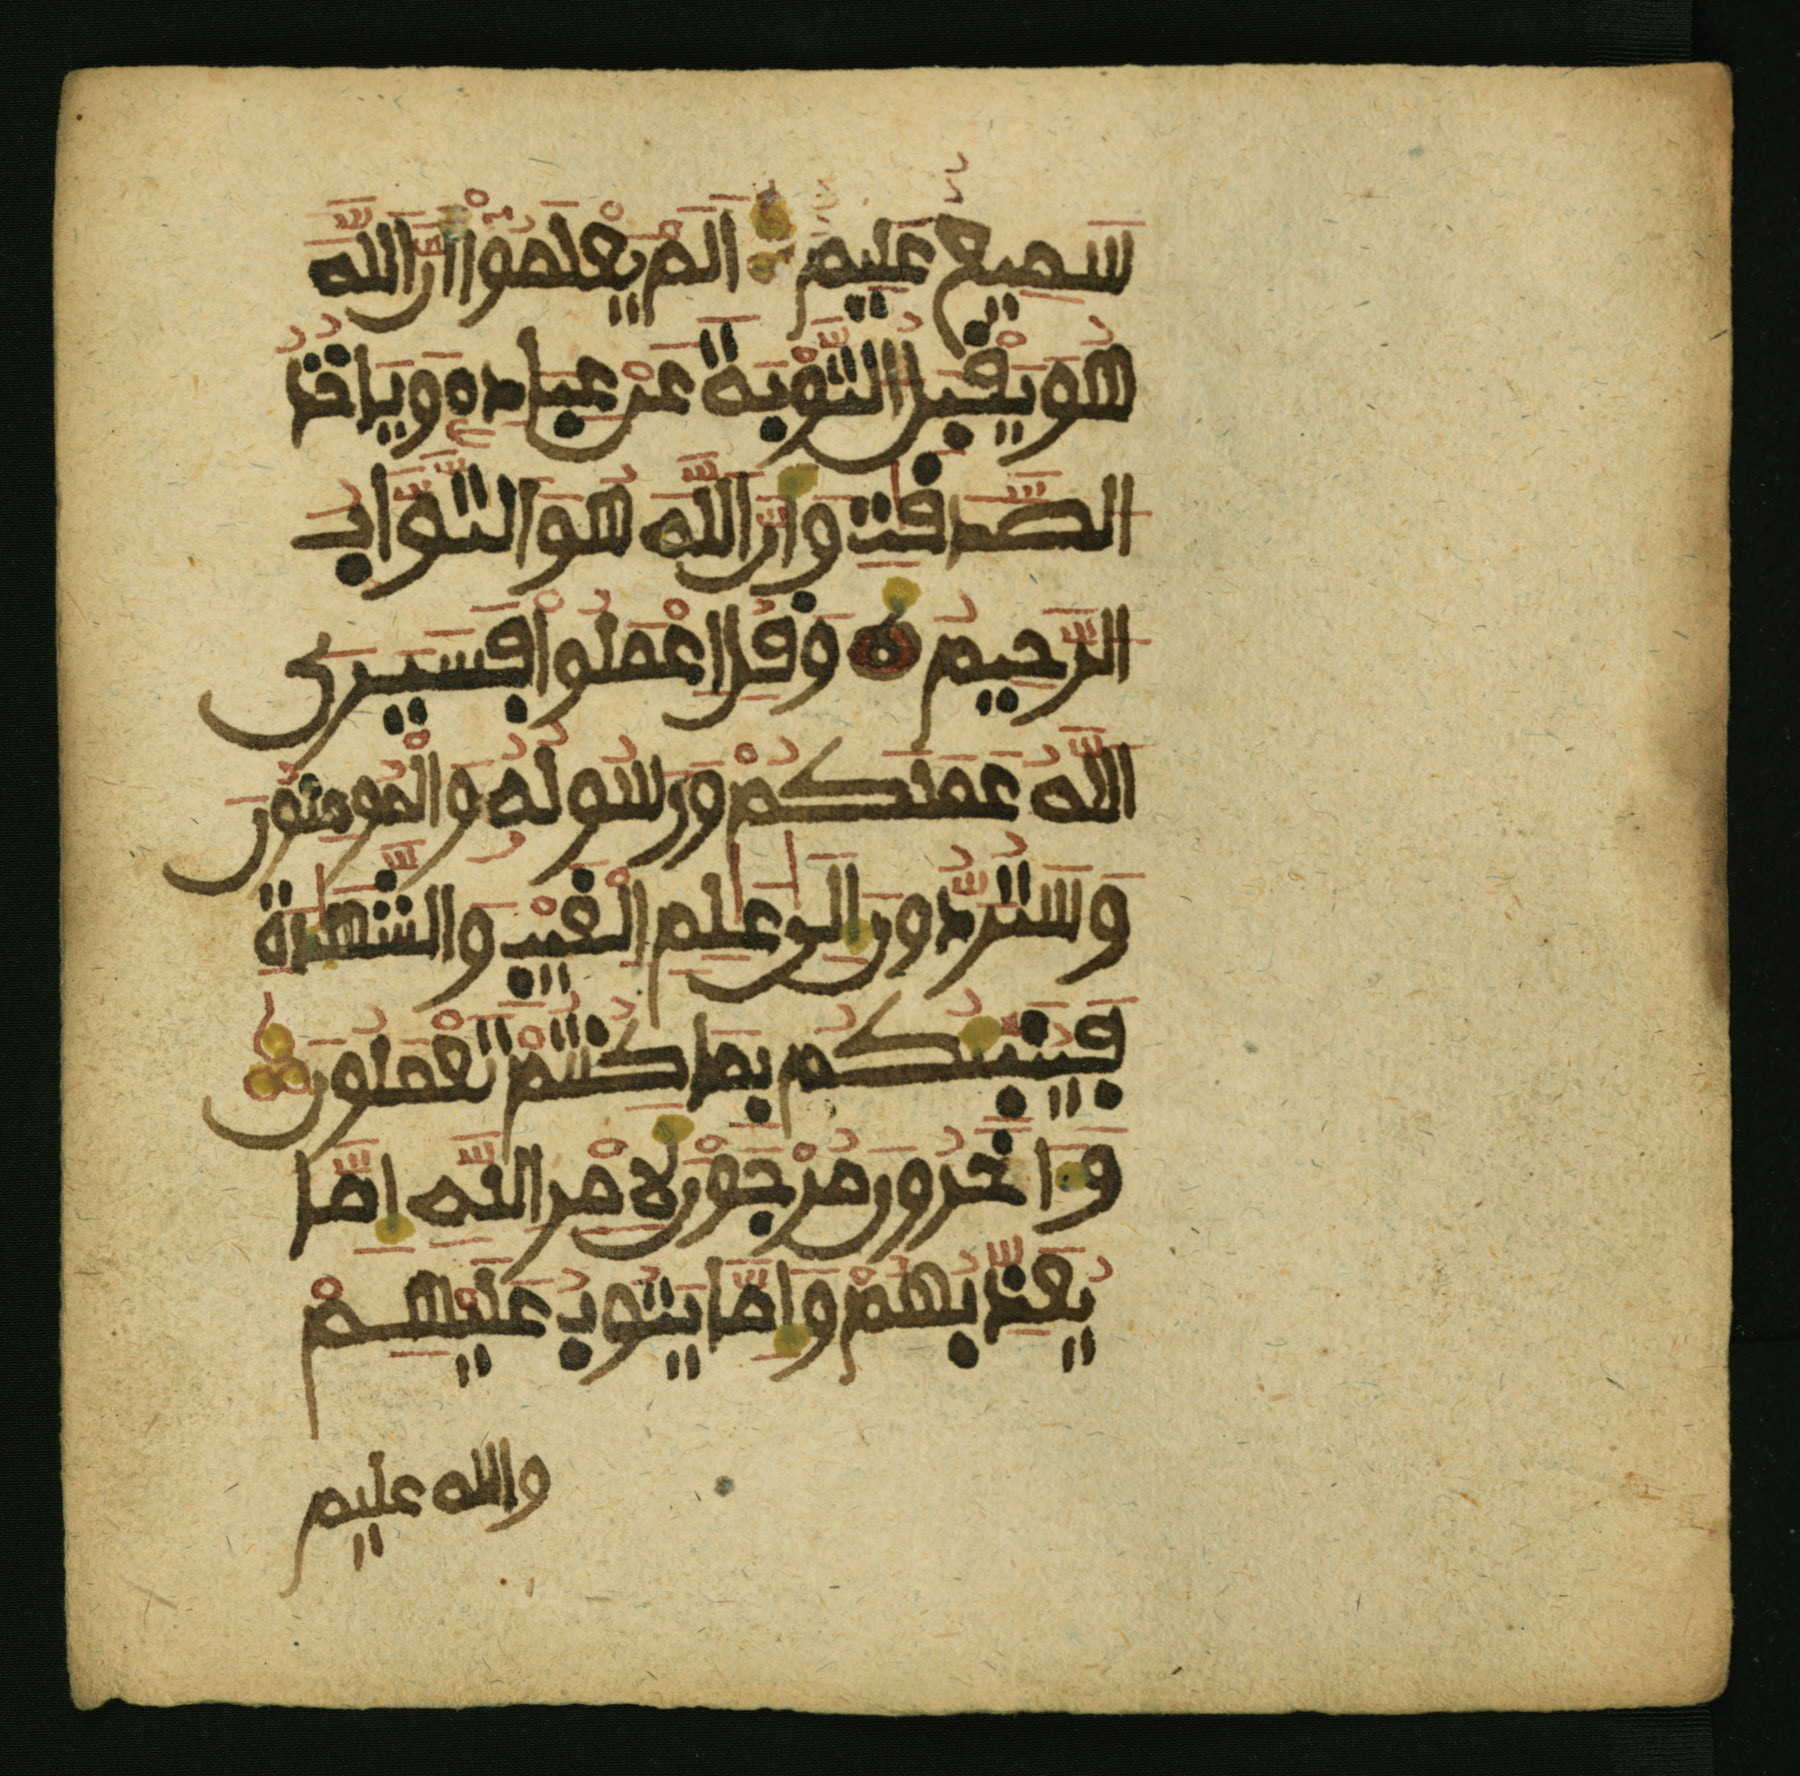 سَمِيعٌ عَلِيمٌ أَلَمْ يَعْلَمُوٓا أَنَّ اَللَّهَ
هُوَ يَقْبَلُ اُلتَّوْبَةَ عَنْ عِبَادِهِ وَيَاخُذُ
اُلصَّدَقَٰتِ وَأَنَّ اَللَّهَ هُوَ اَلتَّوَّابُ
اُلرَّحِيمُ وَقُلِ اِعْمَلُوا فَسَيَرَى
اَللَّهُ عَمَلَكُمْ وَرَسُولُهُ وَالْمُومِنُونَ
وَسَتُرَدُّونَ إِلَىٰ عَٰلِمِ اِلْغَيْبِ وَالشَّهَٰدَةِ
فَيُنَبِّئُكُم بِمَا كُنتُمْ تَعْمَلُونَ
وَءَاخَرُونَ مُرْجَوْنَ لِأَمْرِ اِللَّهِ إِمَّا
يُعَذِّبُهُمْ وَإِمَّا يَتُوبُ عَلَيْهِمْ
والله عليم